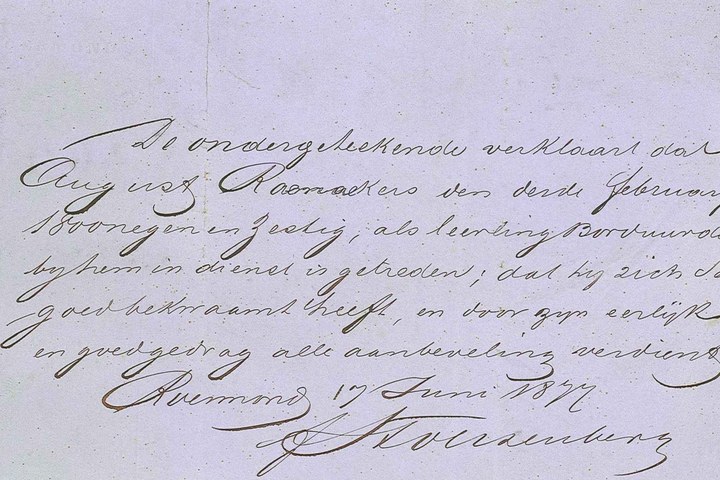 De ondergeteekende verklaart dat
August Raemaekers den derde februar
1800negen en zestig, als leerling Borduurde
by hem in dienst is getreden; dat hy zich
goed bekwaamt heeft, en door zyn eerlijk
en goed gedrag alle aanbeveling verdient
Roermond 17 Juni 1877